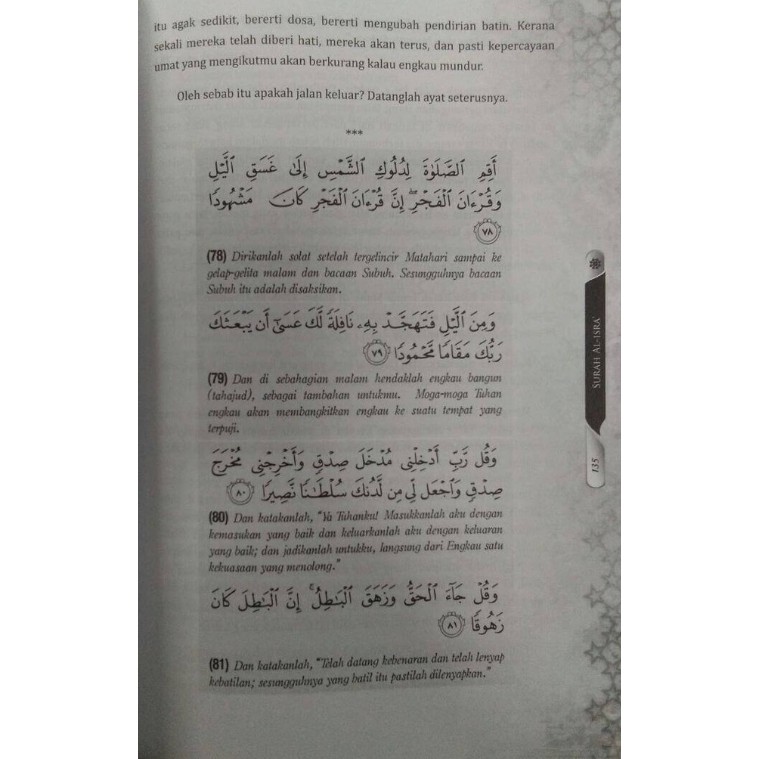 itu agak sedikit, bererti dosa, bererti mengubah pendirian batin. Kerana
sekali mereka telah diberi hati, mereka akan terus, dan pasti kepercayaan
umat yang mengikutmu akan berkurang kalau engkau mundur.
Oleh sebab itu apakah jalan keluar? Datanglah ayat seterusnya.
***
أَقِمِ ٱلصَّلَوٰةَ لِدُلُوكِ ٱلشَّمْسِ إِلَىٰ غَسَقِ ٱلَّيْلِ
وَقُرْءَانَ ٱلْفَجْرِ ۖ إِنَّ قُرْءَانَ ٱلْفَجْرِ كَانَ مَشْهُودًا
٧٨
(78) Dirikanlah solat setelah tergelincir Matahari sampai ke
gelap-gelita malam dan bacaan Subuh. Sesungguhnya bacaan
Subuh itu adalah disaksikan.
وَمِنَ ٱلَّيْلِ فَتَهَجَّدْ بِهِۦ نَافِلَةً لَّكَ عَسَىٰٓ أَن يَبْعَثَكَ
رَبُّكَ مَقَامًا مَّحْمُودًا ٧٩
(79) Dan di sebahagian malam hendaklah engkau bangun
(tahajud), sebagai tambahan untukmu. Moga-moga Tuhan
engkau akan membangkitkan engkau ke suatu tempat yang
terpuji.
وَقُل رَّبِّ أَدْخِلْنِى مُدْخَلَ صِدْقٍ وَأَخْرِجْنِى مُخْرَجَ
صِدْقٍ وَٱجْعَل لِّى مِن لَّدُنكَ سُلْطَـٰنًا نَّصِيرًا ٨٠
(80) Dan katakanlah, "Ya Tuhanku! Masukkanlah aku dengan
kemasukan yang baik dan keluarkanlah aku dengan keluaran
yang baik; dan jadikanlah untukku, langsung dari Engkau satu
kekuasaan yang menolong."
وَقُلْ جَآءَ ٱلْحَقُّ وَزَهَقَ ٱلْبَـٰطِلُ ۚ إِنَّ ٱلْبَـٰطِلَ كَانَ
زَهُوقًا ٨١
(81) Dan katakanlah, "Telah datang kebenaran dan telah lenyap
kebatilan; sesungguhnya yang batil itu pastilah dilenyapkan."
SURAH AL-ISRA'
135